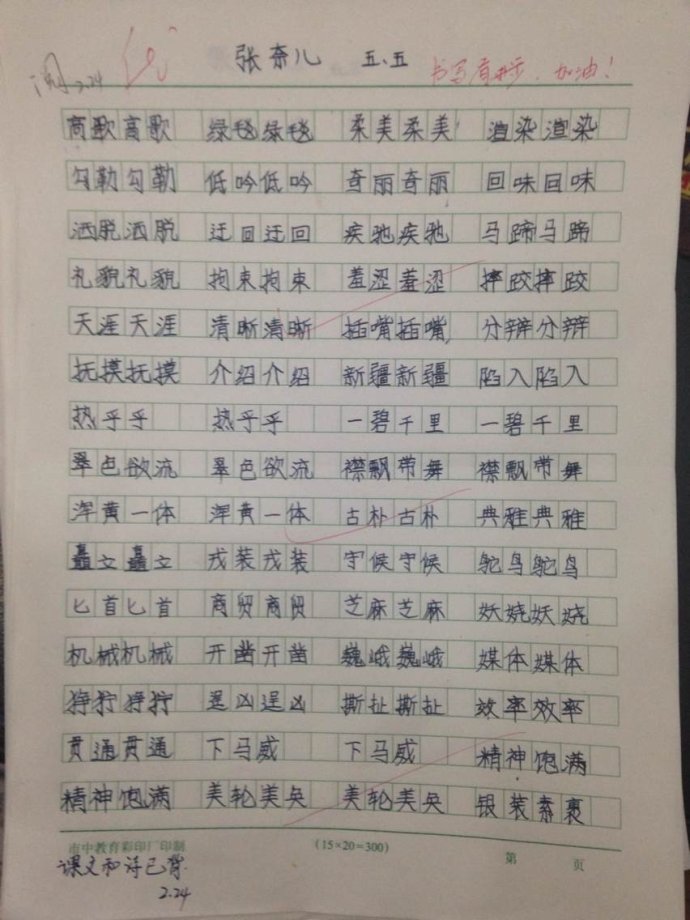 阅 2.24 优 张奈儿 五.五 书写有进步，加油！
高歌高歌 绿毯绿毯 柔美柔美 渲染渲染
勾勒勾勒 低吟低吟 奇丽奇丽 回味回味
洒脱洒脱 迂回迂回 疾驰疾驰 马蹄马蹄
礼貌礼貌 拘束拘束 羞涩羞涩 摔跤摔跤
天涯天涯 清晰清晰 插嘴插嘴 分辨分辨
抚摸抚摸 介绍介绍 新疆新疆 陷入陷入
热乎乎 热乎乎 一碧千里 一碧千里
翠色欲流 翠色欲流 襟飘带舞 襟飘带舞
浑黄一体 浑黄一体 古朴古朴 典雅典雅
矗立矗立 戎装戎装 守候守候 鸵鸟鸵鸟
匕首匕首 商贸商贸 芝麻芝麻 妖娆妖娆
机械机械 开凿开凿 巍峨巍峨 媒体媒体
狰狞狰狞 逞凶逞凶 撕扯撕扯 效率效率
贯通贯通 下马威 下马威 精神饱满
精神饱满 美轮美奂 美轮美奂 银装素裹
市中教育彩印厂印制 (15×20=300) 第 页
课文和诗已背
2.24